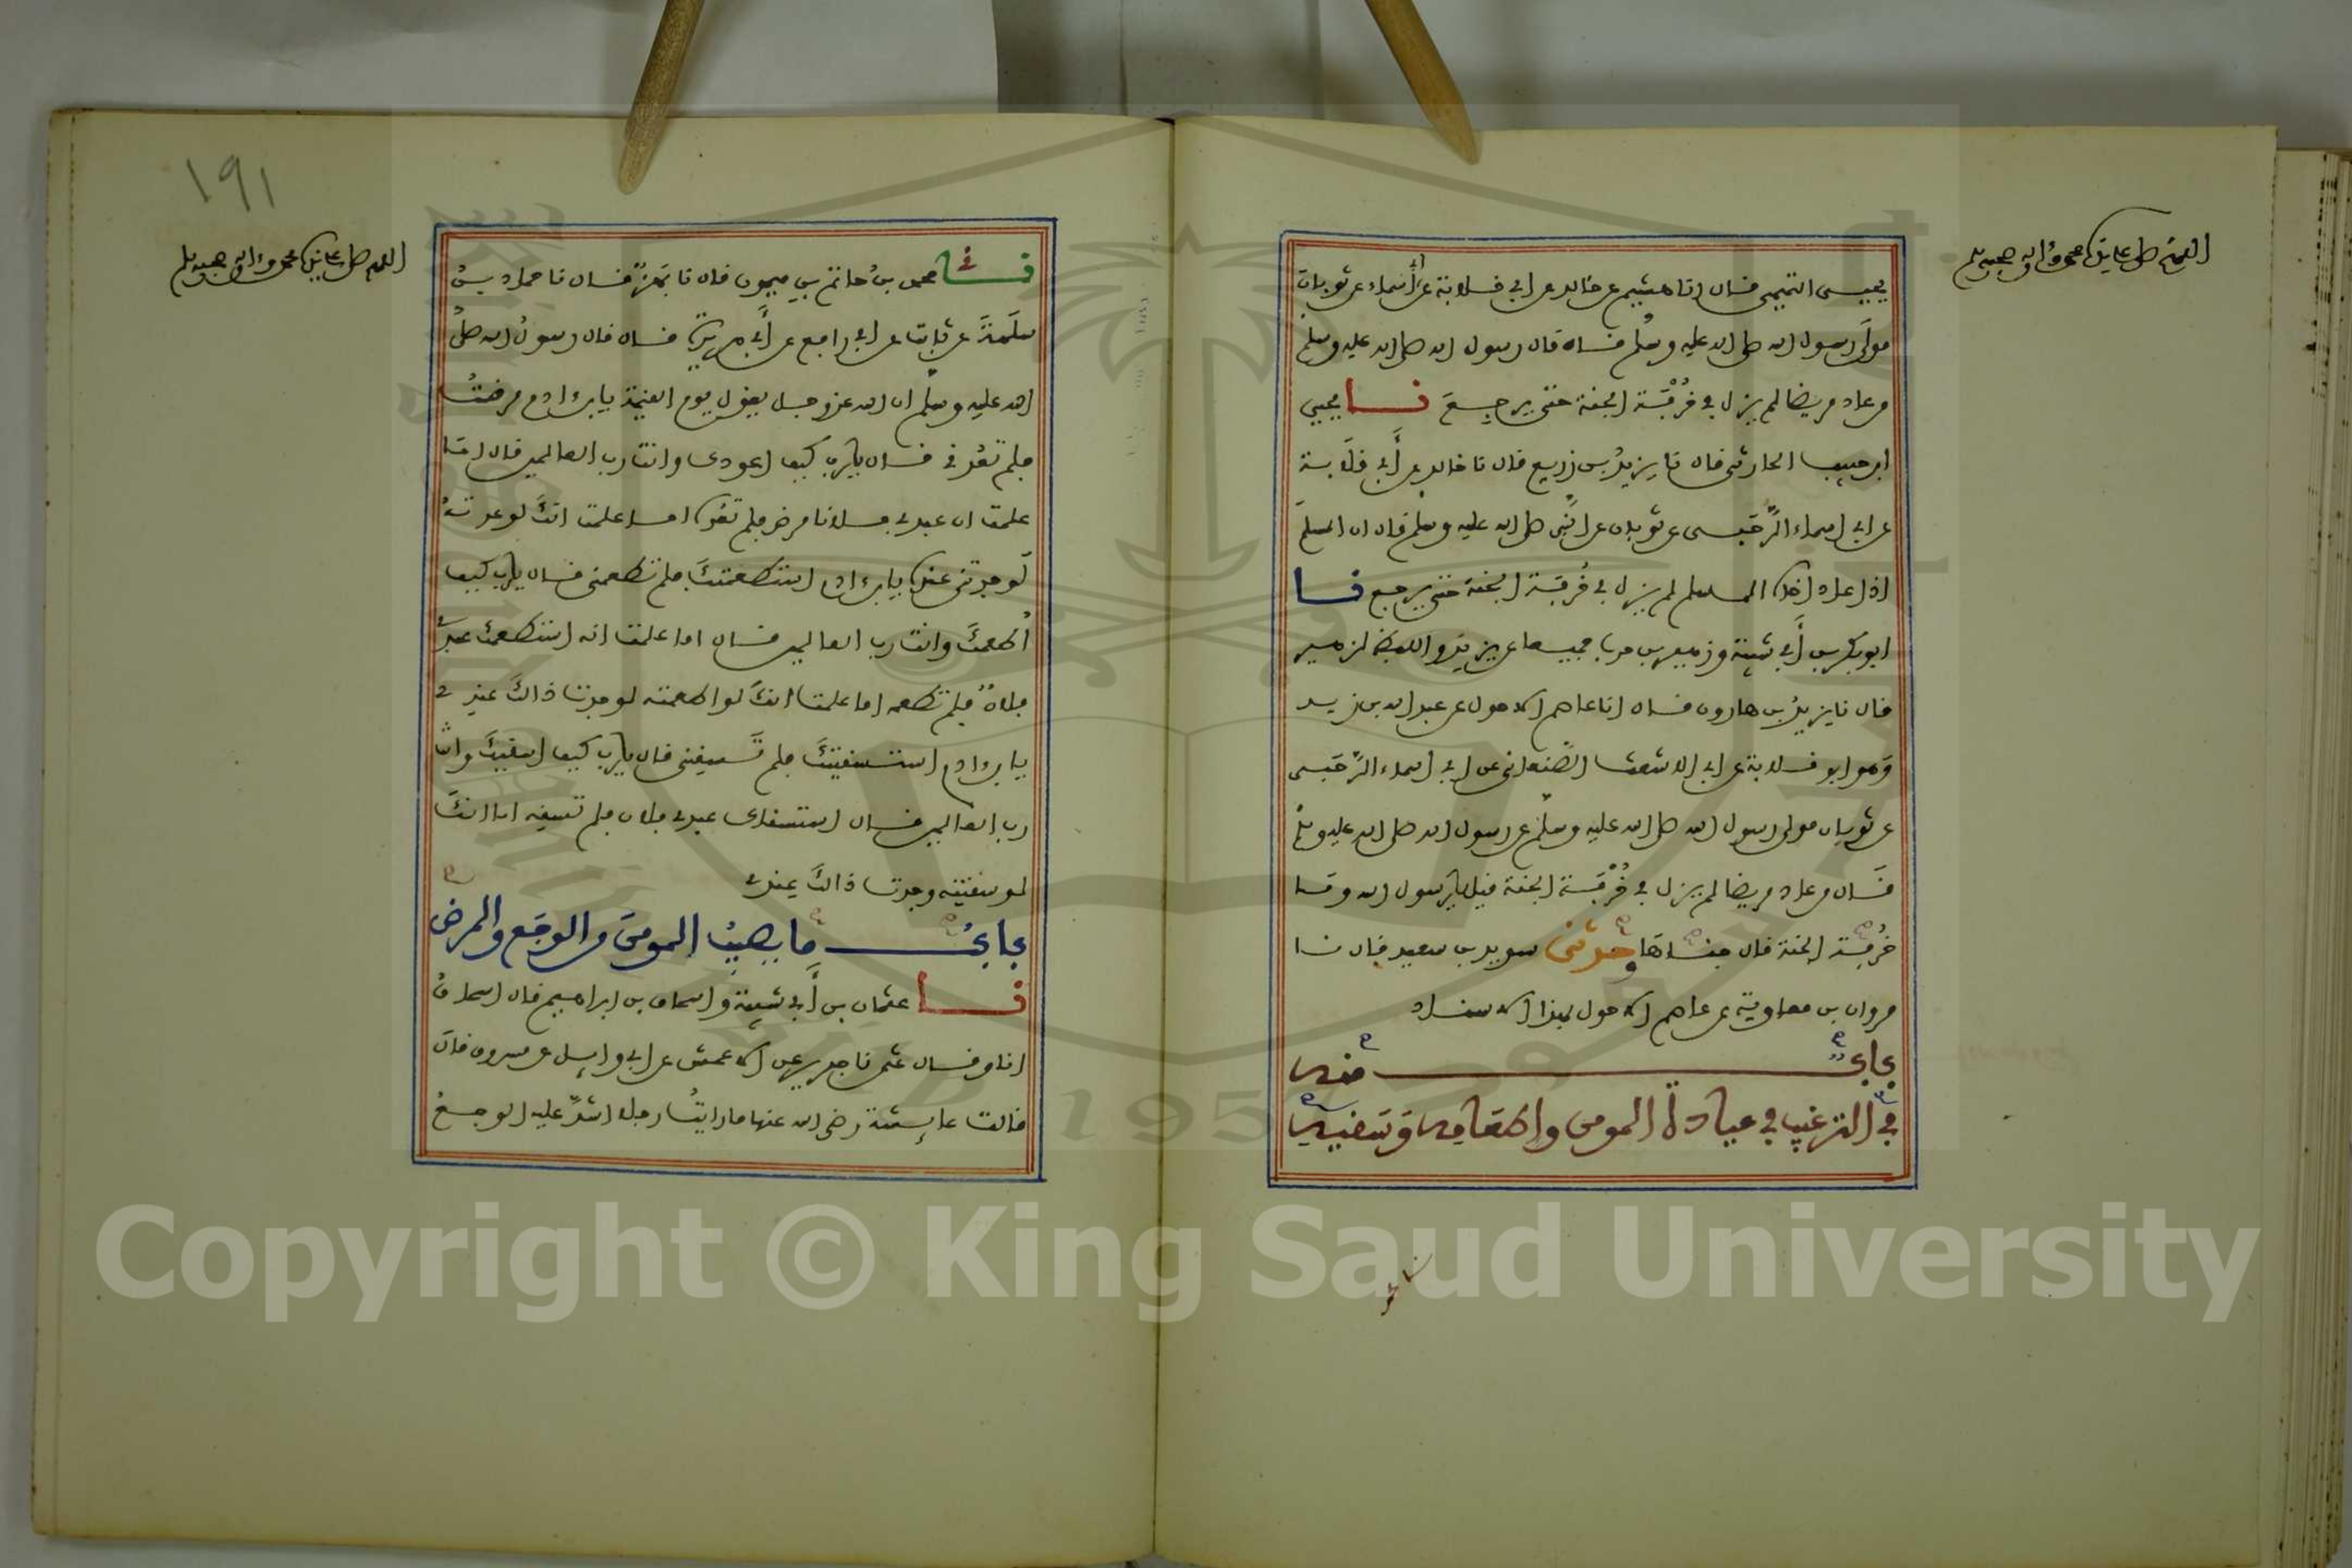 اللهم صل على سيدنا محمد وءاله وصحبه وسلم
يحيى التميمي قال انا هشيم عن خالد عن ابي قلابة عن أبي أسماء عن ثوبان
مولى رسول الله صلى الله عليه وسلم قال قال رسول الله صلى الله عليه وسلم
من عاد مريضا لم يزل في خُرْفَة الجنة حتى يرجع نا يحيى
ابن حبيب الحارثي قال نا يزيدُ بن زريع قال نا خالد عن أَبي قلَابة
عن ابي اسماء الرَّحَبي عن ثوبان عن النبي صلى الله عليه وسلم قال ان المسلم
اذا عاد اخاه المسلم لم يزل في خُرفة الجنة حتى يرجع نا
ابو بكر بن أَبي شيبة وزهير بن حرب جميعا عن يزيد واللفظ لزهير
قال نا يزيدُ بن هارون قال انا عاصم الاحول عن عبد الله بن زيد
وَهو ابو قلابة عن ابي الاشعث الصَّنعاني عن ابي اسماء الرَّحَبي
عن ثوبان مولى رسول الله صلى الله عليه وسلم عن رسول الله صلى الله عليه وسلم
قال من عاد مريضا لم يزل في خُرْفَة الجنة قيل يا رسول الله وما
خُرفة الجنة قال جناها وحدثني سويد بن سعيد قال نا
مروان بن معاوية عن عاصم الاحول بهذا الاسناد
باب منه
في الترغيب في عيادة المومن واطعامه وَسَقيه
نا محمد
١٩١
اللهم صل على سيدنا محمد وءاله وصحبه وسلم
نا محمد بنُ حاتم بن ميمون قال نا بَهزٌ قال نا حماد بنُ
سلَمةَ عن ثابت عن ابي رافع عن أَبي هريرة قال قال رسولُ الله صلى
الله عليه وسلم ان الله عز وجل يقول يوم القيمة يا بن ءادم مرضتُ
فلم تعُدني قال يا رب كيف اعودك وانت رب العالمين قال اما
علمت ان عبدي فلانا مرض فلم تعُده اما علمت انكَ لو عدتهُ
لَوجدتني عنده يا بن ءادم استطعمتكَ فلم تطعمني قال يا رب كيف
أُطعمكَ وانت رب العالمين قال اما علمت انه استطعمك عبدي
فلانٌ فلم تطعمه اما علمت انكَ لو اطعمته لوجدت ذالكَ عندي
يا بن ءادم استسقيتكَ فلم تَسقني قال يا رب كيف اسقيكَ وانت
رب العالمين قال استسقاك عبدي فلان فلم تسقه اما انكَ
لو سقيته وجدت ذالكَ عندي
بابُ ما يصيبُ المومنَ من الوجَع والمرض
نا عثمان بن أَبي شيبة وإسحاق بن ابراهيم قال اسحاقُ
انا وقال عثمن نا جرير عن الاعمش عن ابي وايل عن مسروق قال
قالت عايشة رضي الله عنها ما رايتُ رجلا اشدَّ عليه الوجعُ
Copyright © King Saud University